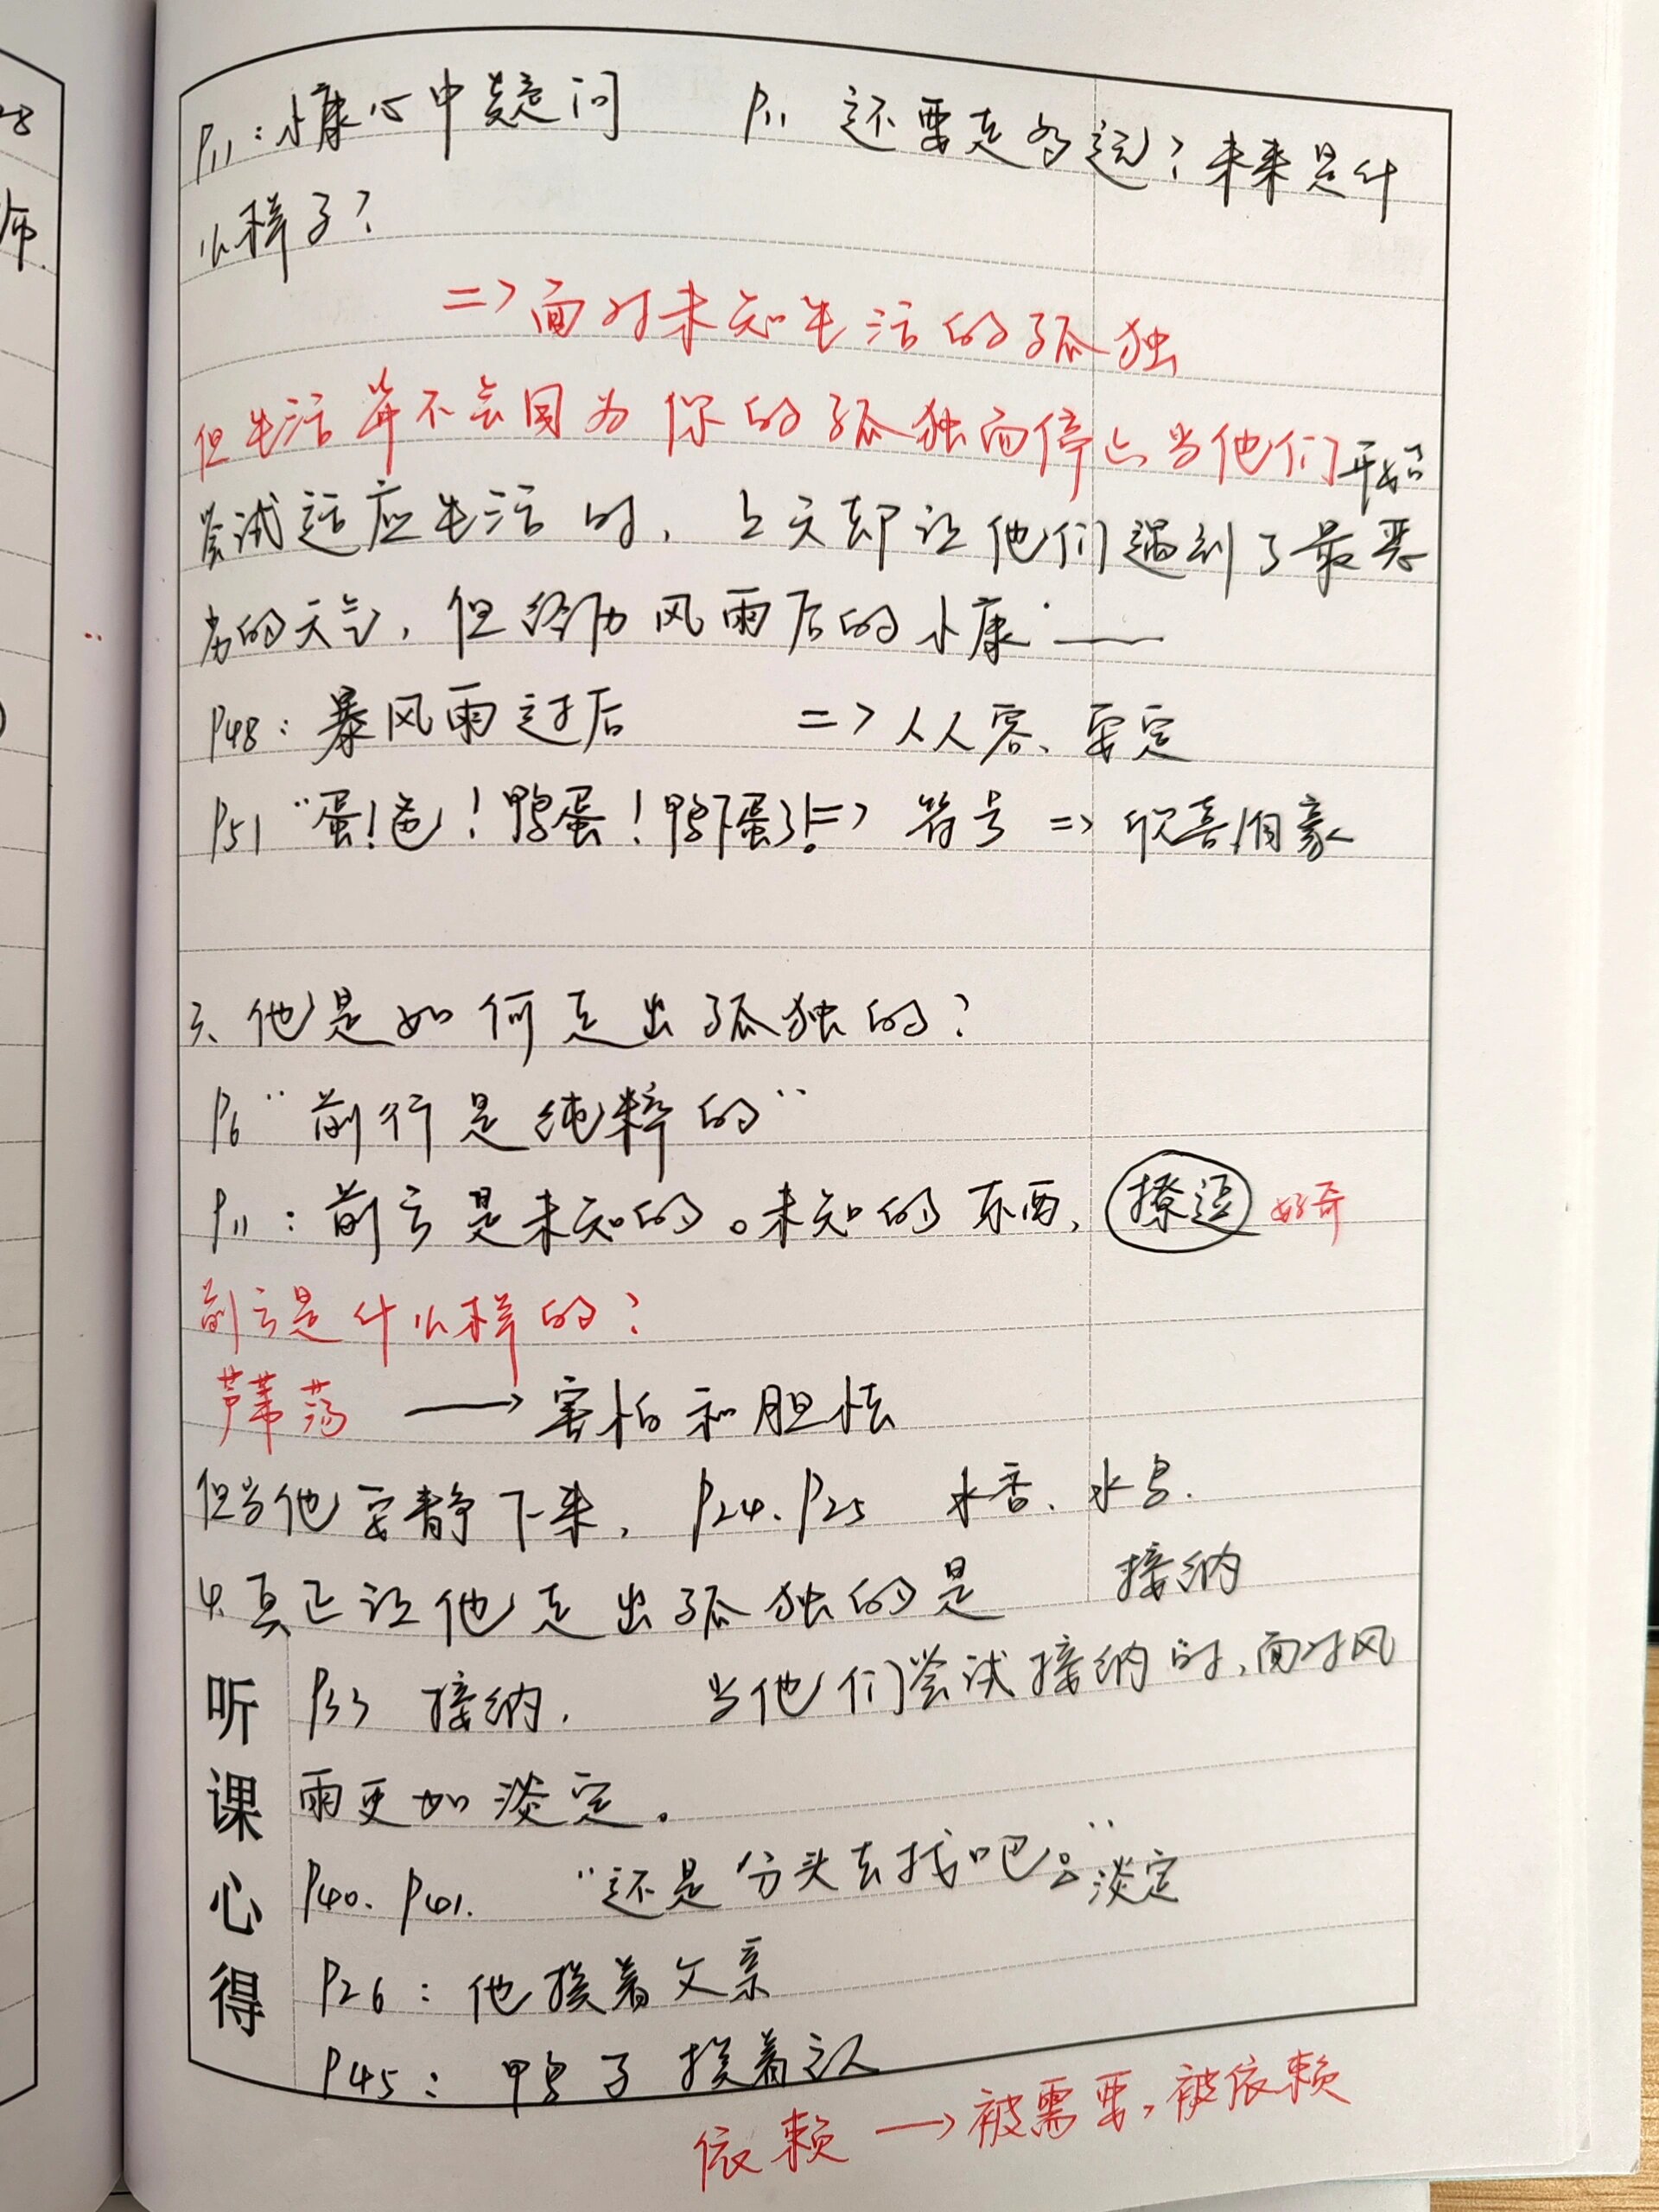 28
师.
P11：小康心中疑问 P11 还要走多远？未来是什
么样子？
=> 面对未知生活的孤独
但生活并不会因为你的孤独而停止当他们开始
尝试适应生活时，上天却让他们遇到了最恶
劣的天气，但经历风雨后的小康——
P48：暴风雨过后 => 从容、安定
P51 “蛋！爸！鸭蛋！鸭下蛋了！=> 符号 => 欣喜/自豪
三、他是如何走出孤独的？
P6 “前行是纯粹的”
P11：前方是未知的。未知的东西， 撩逗 好奇
前方是什么样的？
芦苇荡 —> 害怕和胆怯
但当他安静下来， P24.P25 水香、水鸟.
4.真正让他走出孤独的是 接纳
听课心得
P33 接纳， 当他们尝试接纳时，面对风
雨更加淡定。
P40. P41. “还是分头去找吧。” 淡定
P26：他挨着父亲
P45：鸭子挨着主人
依赖 —> 被需要，被依赖